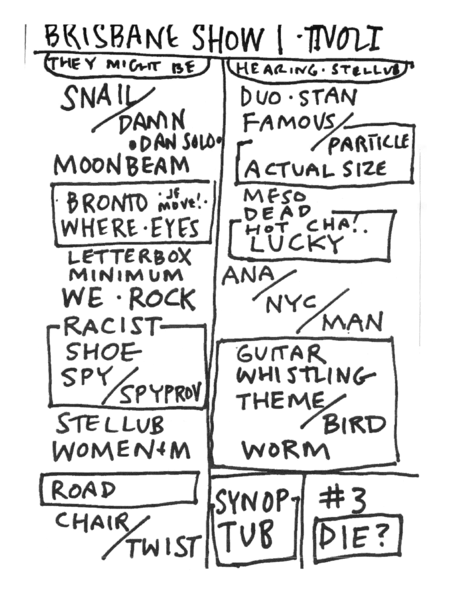 BRISBANE SHOW 1 · TIVOLI
THEY MIGHT BE
SNAIL/
DAMN
• DAN SOLO •
MOONBEAM
· BRONTO · JF MOVE! ·
WHERE · EYES
LETTERBOX
MINIMUM
WE · ROCK
RACIST
SHOE
SPY/
SPYPROV
STELLUB
WOMEN+M
ROAD
CHAIR/
TWIST
HEARING · STELLUB
DUO · STAN
FAMOUS/
PARTICLE
ACTUAL SIZE
MESO
DEAD
HOT CHA!.
LUCKY
ANA/
NYC/
MAN
GUITAR
WHISTLING
THEME/
BIRD
WORM
SYNOP-
TUB
#3
DIE?